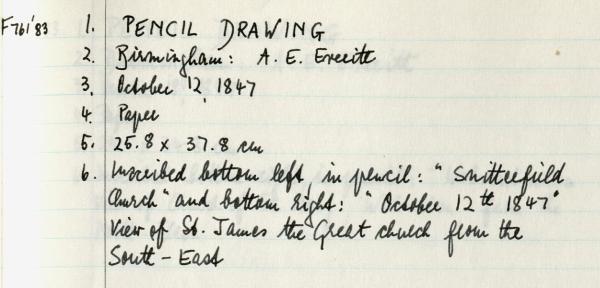 F761'83 1. PENCIL DRAWING
2. Birmingham: A. E. Everitt
3. October 12, 1847
4. Paper
5. 25.8 x 37.8 cm
6. Inscribed bottom left, in pencil: "Snitterfield
Church" and bottom right: "October 12th 1847"
View of St. James the Great church from the
South-East